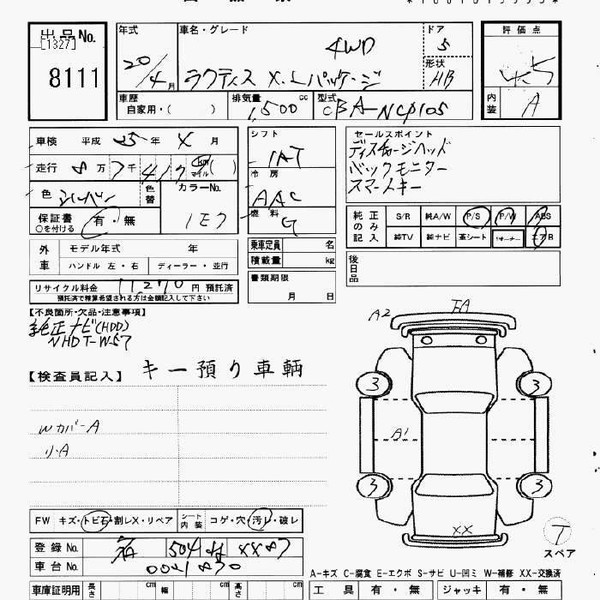 出品No.
[1327]
8111
年式
20/4月
車名・グレード
4WD
ラクティス X.Lパッケージ
ドア
5
形状
HB
評価点
4.5
内装
A
車歴
自家用・( )
排気量 cc
1,500
型式
CBA-NCP105
車検 平成 25年 4月
走行 8万7千417 km マイル ( )
色 シルバー
色替
カラーNo.
1E7
保証書 有・無
○を付ける
外車
モデル年式 年
ハンドル 左・右 ディーラー・並行
リサイクル料金 11,270円 預託済
預託済で精算希望される方は金額記入して下さい
シフト
IAT
冷房
AAC
燃料
G
乗車定員 名
積載量 kg
書類期限
月 日
セールスポイント
ディスチャージヘッド
バックモニター
スマートキー
純正のみ記入
S/R 純A/W P/S P/W ABS
純TV 純ナビ 革シート エアB
後日品
【不良箇所・欠品・注意事項】
純正ナビ(HDD)
NHDT-W57
【検査員記入】 キー預り車輌
Wカバー A
リ.A
FW キズ・トビ石・割レX・リペア
シート内装 コゲ・穴・汚レ・破レ
登録No. 504 XX87
車台No. 0041870
車庫証明用 長さ cm 幅 cm 高さ cm
A2
FA
3
3
A1
3
3
XX
T
スペア
A-キズ C-腐食 E-エクボ S-サビ U-凹ミ W-補修 XX-交換済
工具 有・無 ジャッキ 有・無